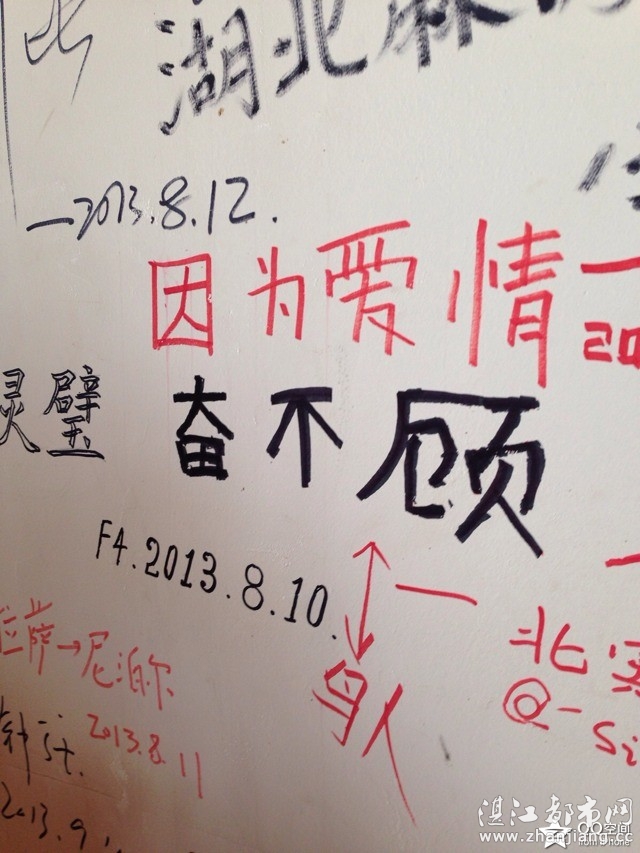 湖北麻
—2013.8.12.
因为爱情
20
灵璧
奋不顾
F4.2013.8.10.
身
拉萨→尼泊尔
2013.8.11
北
@-Si
2013.9
湛江都市网
www.zhanjiang.cc
QQ空间
from iPhone